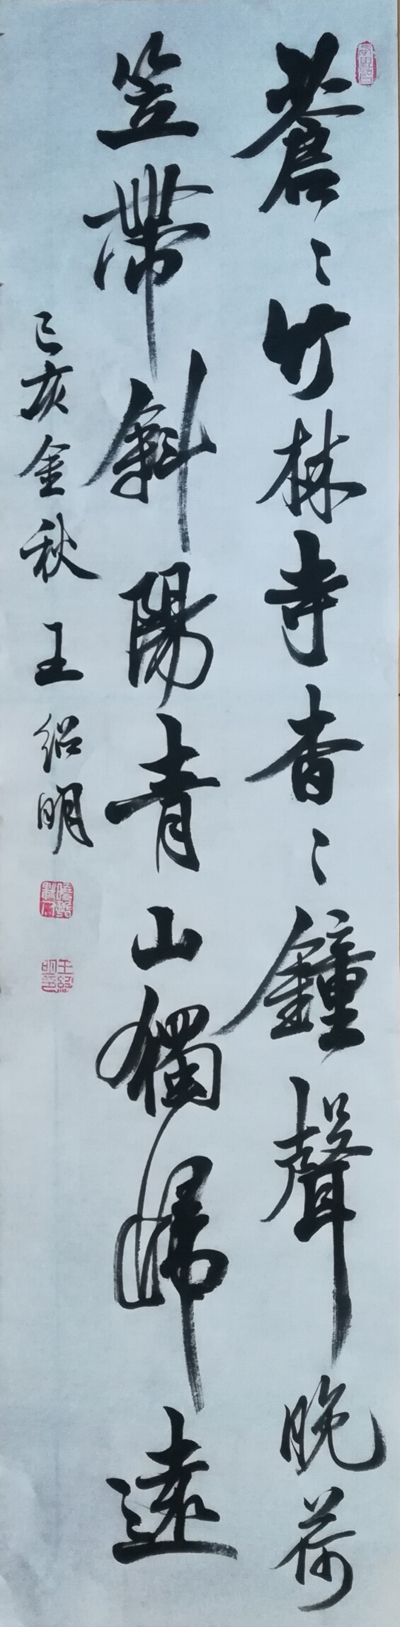 蒼〻竹林寺杳〻鐘聲晚荷
笠帶斜陽青山獨歸遠
己亥金秋王紹明